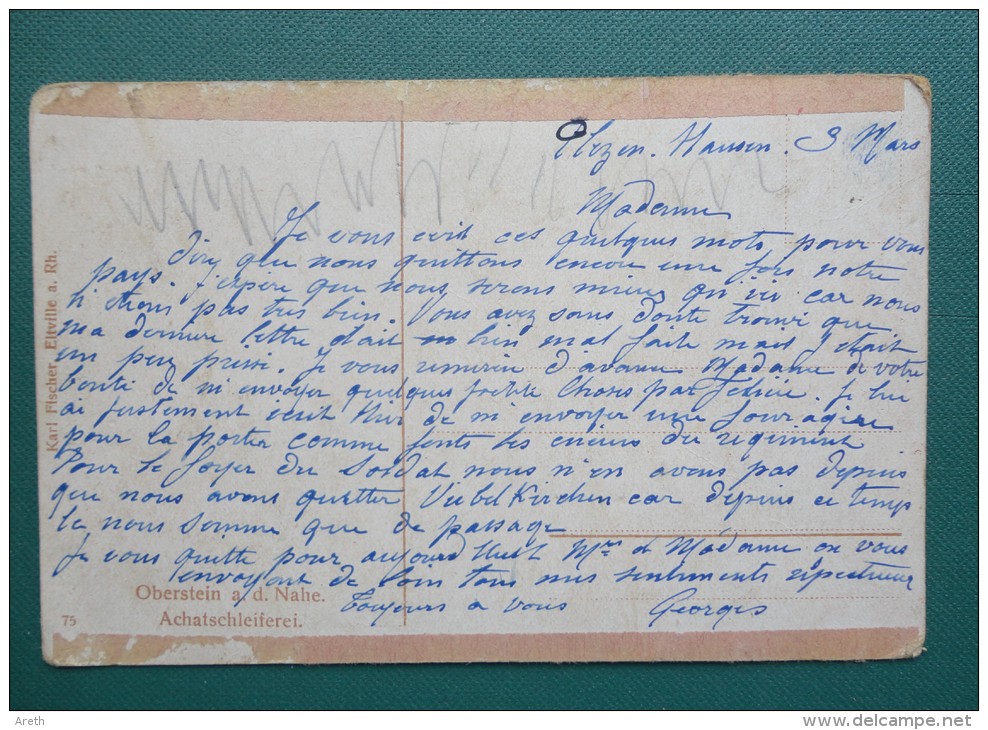 Hausen. 3 Mars
Madame
Je vous ecrit ces quelques mots, pour vous
dire que nous quittons encore une fois notre
pays. j'espère que nous serons mieux qu'ici car nous
n'étions pas très bien. Vous avez sans doute trouvé que
ma dernière lettre était bien mal faite mais j'était
un peu pressé. Je vous remercie d'avance Madame de votre
bonté de m'envoyer quelques petite choses par
ai justement ecrit hier de m'envoyer une fouragère
pour la porter comme font les anciens du regiment
Pour le foyer du Soldat nous n'en avons pas depuis
que nous avons quitter Viebelkirchen car depuis ce temps
là nous somme que de passage
Je vous quitte pour aujourd'huit Mr et Madame en vous
envoyant de loin tous mes sentiments respectueux
Toujours a vous Georges
Karl Fischer Eltville a. Rh.
Oberstein a. d. Nahe.
Achatschleiferei.
75
Areth
www.delcampe.net